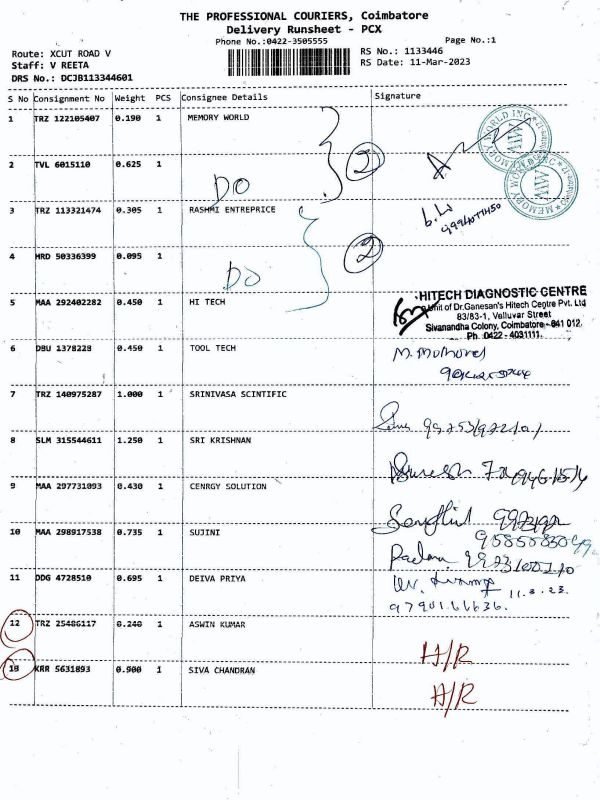 THE PROFESSIONAL COURIERS, Coimbatore
Delivery Runsheet - PCX
Phone No.:0422-3505555 Page No.:1
Route: XCUT ROAD V RS No.: 1133446
Staff: V REETA RS Date: 11-Mar-2023
DRS No.: DCJB113344601
S No Consignment No Weight PCS Consignee Details Signature
1 TRZ 122105407 0.190 1 MEMORY WORLD
MEMORY WORLD INC
MW
2 TVL 6015110 0.625 1
DO 2
3 TRZ 113321474 0.305 1 RASHMI ENTREPRICE
4 HRD 50336399 0.095 1
DO 2
5 MAA 292402282 0.450 1 HI TECH
HITECH DIAGNOSTIC CENTRE
Unit of Dr.Ganesan's Hitech Centre Pvt. Ltd
83/83-1, Velluvar Street
Sivanandha Colony, Coimbatore - 641 012.
Ph. 0422 - 4031111.
6 DBU 1378228 0.450 1 TOOL TECH
7 TRZ 140975287 1.000 1 SRINIVASA SCINTIFIC
8 SLM 315544611 1.250 1 SRI KRISHNAN
9 MAA 297731093 0.430 1 CENRGY SOLUTION
10 MAA 298917538 0.735 1 SUJINI
11 DDG 4728510 0.695 1 DEIVA PRIYA
11.3.23.
12 TRZ 25486117 0.240 1 ASWIN KUMAR
H/R
13 KRR 5631893 0.900 1 SIVA CHANDRAN
A/R